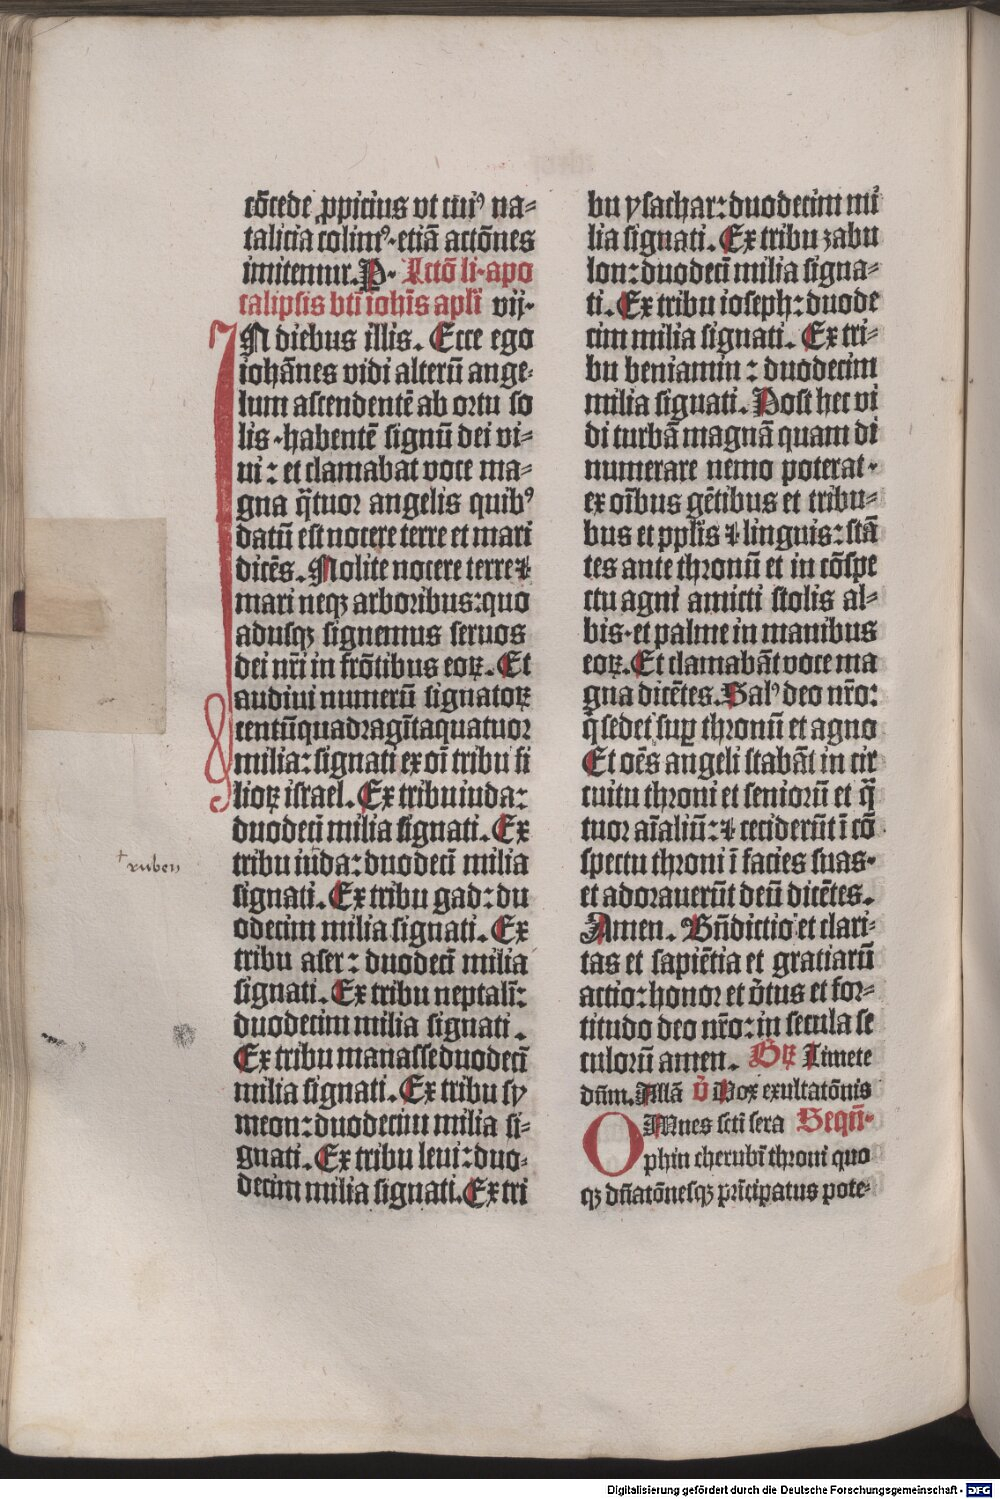 cōcede ꝓpicius vt cuiꝰ na⸗
talicia colimꝰ· etiā actōnes
imitemur. P· Lctō li· apo
calipsis bti̅ ioh̅is apl̅i vij·
IN diebus illis. Ecce ego
iohānes vidi alterū ange⸗
lum ascendentē ab ortu so
lis · habentē signū dei vi⸗
ui : et clamabat voce ma⸗
gna q̄tuor angelis quibꝰ
datū est nocere terre et mari
dicēs. Nolite nocere terre ⁊
mari neqꝫ arboribus: quo
adusqꝫ signemus seruos
dei nr̄i in frōtibus eoꝝ. Et
audiui numerū signatoꝝ
centūquadragītaquatuor
milia: signati ex oī tribu fi
lioꝝ israel. Ex tribu iuda:
duodecī milia signati. Ex
tribu iuda: duodecī milia
signati. Ex tribu gad: du
odecim milia signati. Ex
tribu aser: duodecī milia
signati. Ex tribu neptalī:
duodecim milia signati .
Ex tribu manasse duodecī
milia signati. Ex tribu sy
meon: duodecim milia si⸗
gnati. Ex tribu leui: duo⸗
decim milia signati. Ex tri
† ruben
bu ysachar: duodecim mi
lia signati. Ex tribu zabu
lon: duodecī milia signa⸗
ti. Ex tribu ioseph: duode
cim milia signati. Ex tri⸗
bu beniamin : duodecim
milia signati. Post hec vi
di turbā magnā quam di
numerare nemo poterat ·
ex oībus gētibus et tribu⸗
bus et ppl̅is ⁊ linguis: stā
tes ante thronū et in cōspe
ctu agni amicti stolis al⸗
bis · et palme in manibus
eoꝝ. Et clamabāt voce ma
gna dicētes. Salꝰ deo nr̄o:
q̄ sedet sup̄ thronū et agno
Et oēs angeli stabāt in cir
cuitu throni et seniorū et q̄
tuor aīaliū: ⁊ ceciderūt ī cō
spectu throni ī facies suas·
et adorauerūt deū dicētes.
Amen. Bn̄dictio et clari⸗
tas et sapiētia et gratiarū
actio: honor et v̄tus et for⸗
titudo deo nr̄o: in secula se
culorū amen. Gꝝ Timete
dn̄m. Allā v̄ Vox exultatōnis
OMnes scti̅ sera Sequn̄·
phin cherubī throni quo
qꝫ dn̄atōnesqꝫ prīcipatus pote⸗
Digitalisierung gefördert durch die Deutsche Forschungsgemeinschaft - DFG